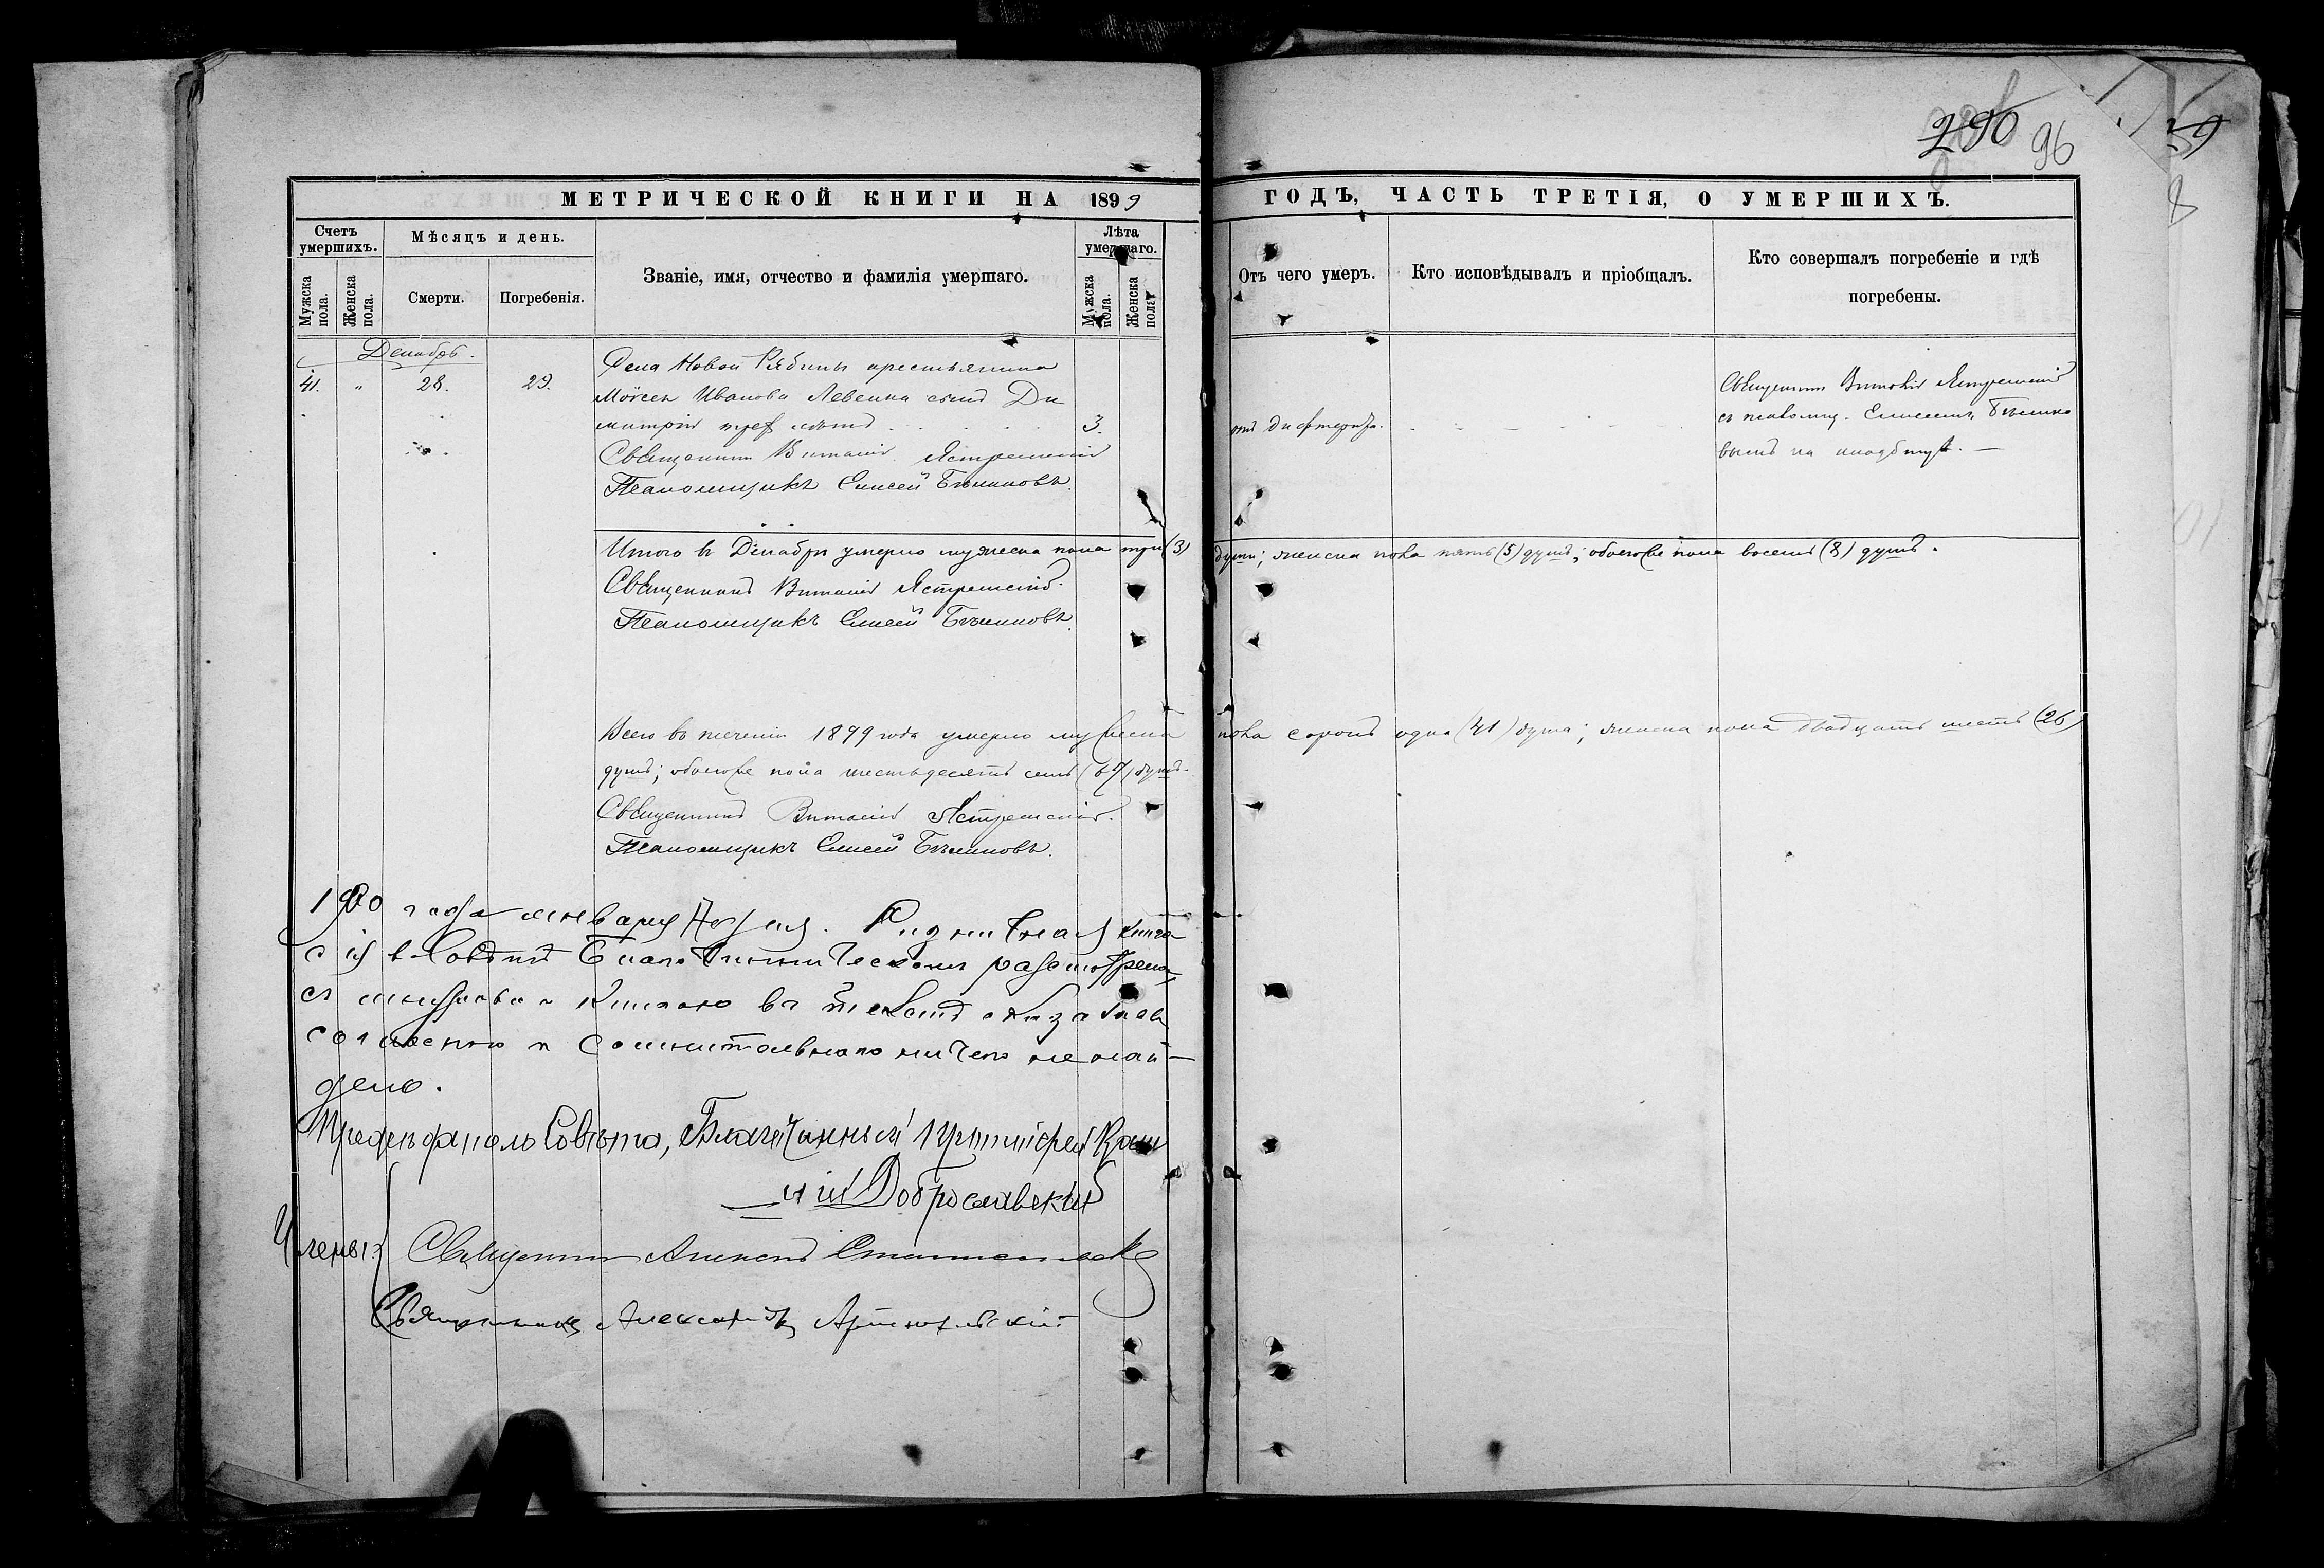 290 96
МЕТРИЧЕСКОЙ КНИГИ НА 1899
ГОДЪ, ЧАСТЬ ТРЕТІЯ, О УМЕРШИХЪ.
Счетъ умершихъ.
Мужска пола.
Женска пола.
Мѣсяцъ и день.
Смерти.
Погребенія.
Званіе, имя, отчество и фамилія умершаго.
Лѣта умершаго.
Мужска пола.
Женска пола.
Отъ чего умеръ.
Кто исповѣдывалъ и пріобщалъ.
Кто совершалъ погребеніе и гдѣ
погребены.
Декабрь.
41. „ 28. 29.
Села Новой Рябины крестьянина
Моѵсея Иванова Левенка сынъ Ди
митрій трехъ лѣтъ 3.
отъ дифтерита.
Священник Виталій Ястремскій
съ псаломщ. Елисеем Бѣлико
вымъ на кладбищѣ.
Священник Виталій Ястремскій
Псаломщикъ Елисей Бѣликовъ.
Итого в Декабрѣ умерло мужеска пола три (3)
души; женска пола пять (5) душъ; обоего пола восемь (8) душъ.
Священникъ Виталій Ястремскій.
Псаломщикъ Елисей Бѣликовъ.
Всего въ теченіи 1899 года умерло мужеска
пола сорокъ одна (41) душа; женска пола двадцать шесть (26)
душъ; обоего пола шестьдесятъ семь (67) душъ.
Священникъ Виталій Ястремскій.
Псаломщикъ Елисей Бѣликовъ.
1900 года января дня. книга
сія в Совѣтѣ Благочинническом разсмотрена
с книгою въ оказалась
согласною и сомнительнаго ничего не най-
дено.
Предсѣдатель Совѣта, Благочинный Протоіерей
Доброславскій
Члены: Священник Алексѣй
Священникъ Александръ